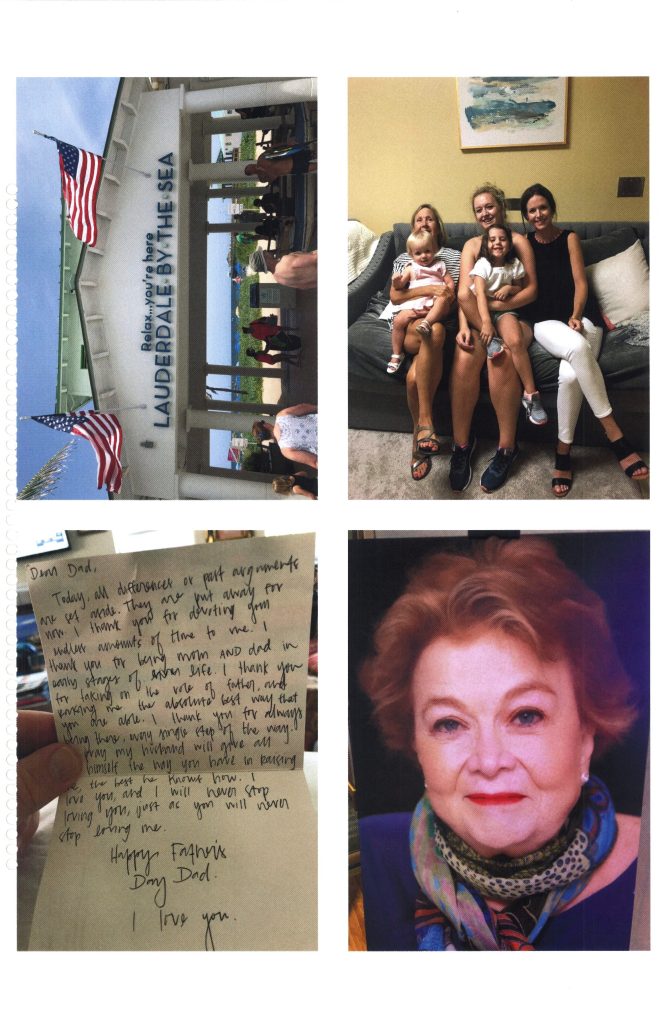 Relax...you're here
LAUDERDALE·BY·THE·SEA
Dear Dad,
Today, all differences or past arguments
are set aside. They are put away for
now. I thank you for devoting your
endless amounts of time to me. I
thank you for being mom AND dad in
early stages of life. I thank you
for taking on the role of father, and
me the absolute best way that
you are able. I thank you for always
being there, every single step of the way.
pray my husband will give all
himself the way you have in raising
me, the best he knows how. I
love you, and I will never stop
loving you, just as you will never
stop loving me.
Happy Father's
Day Dad.
I love you.